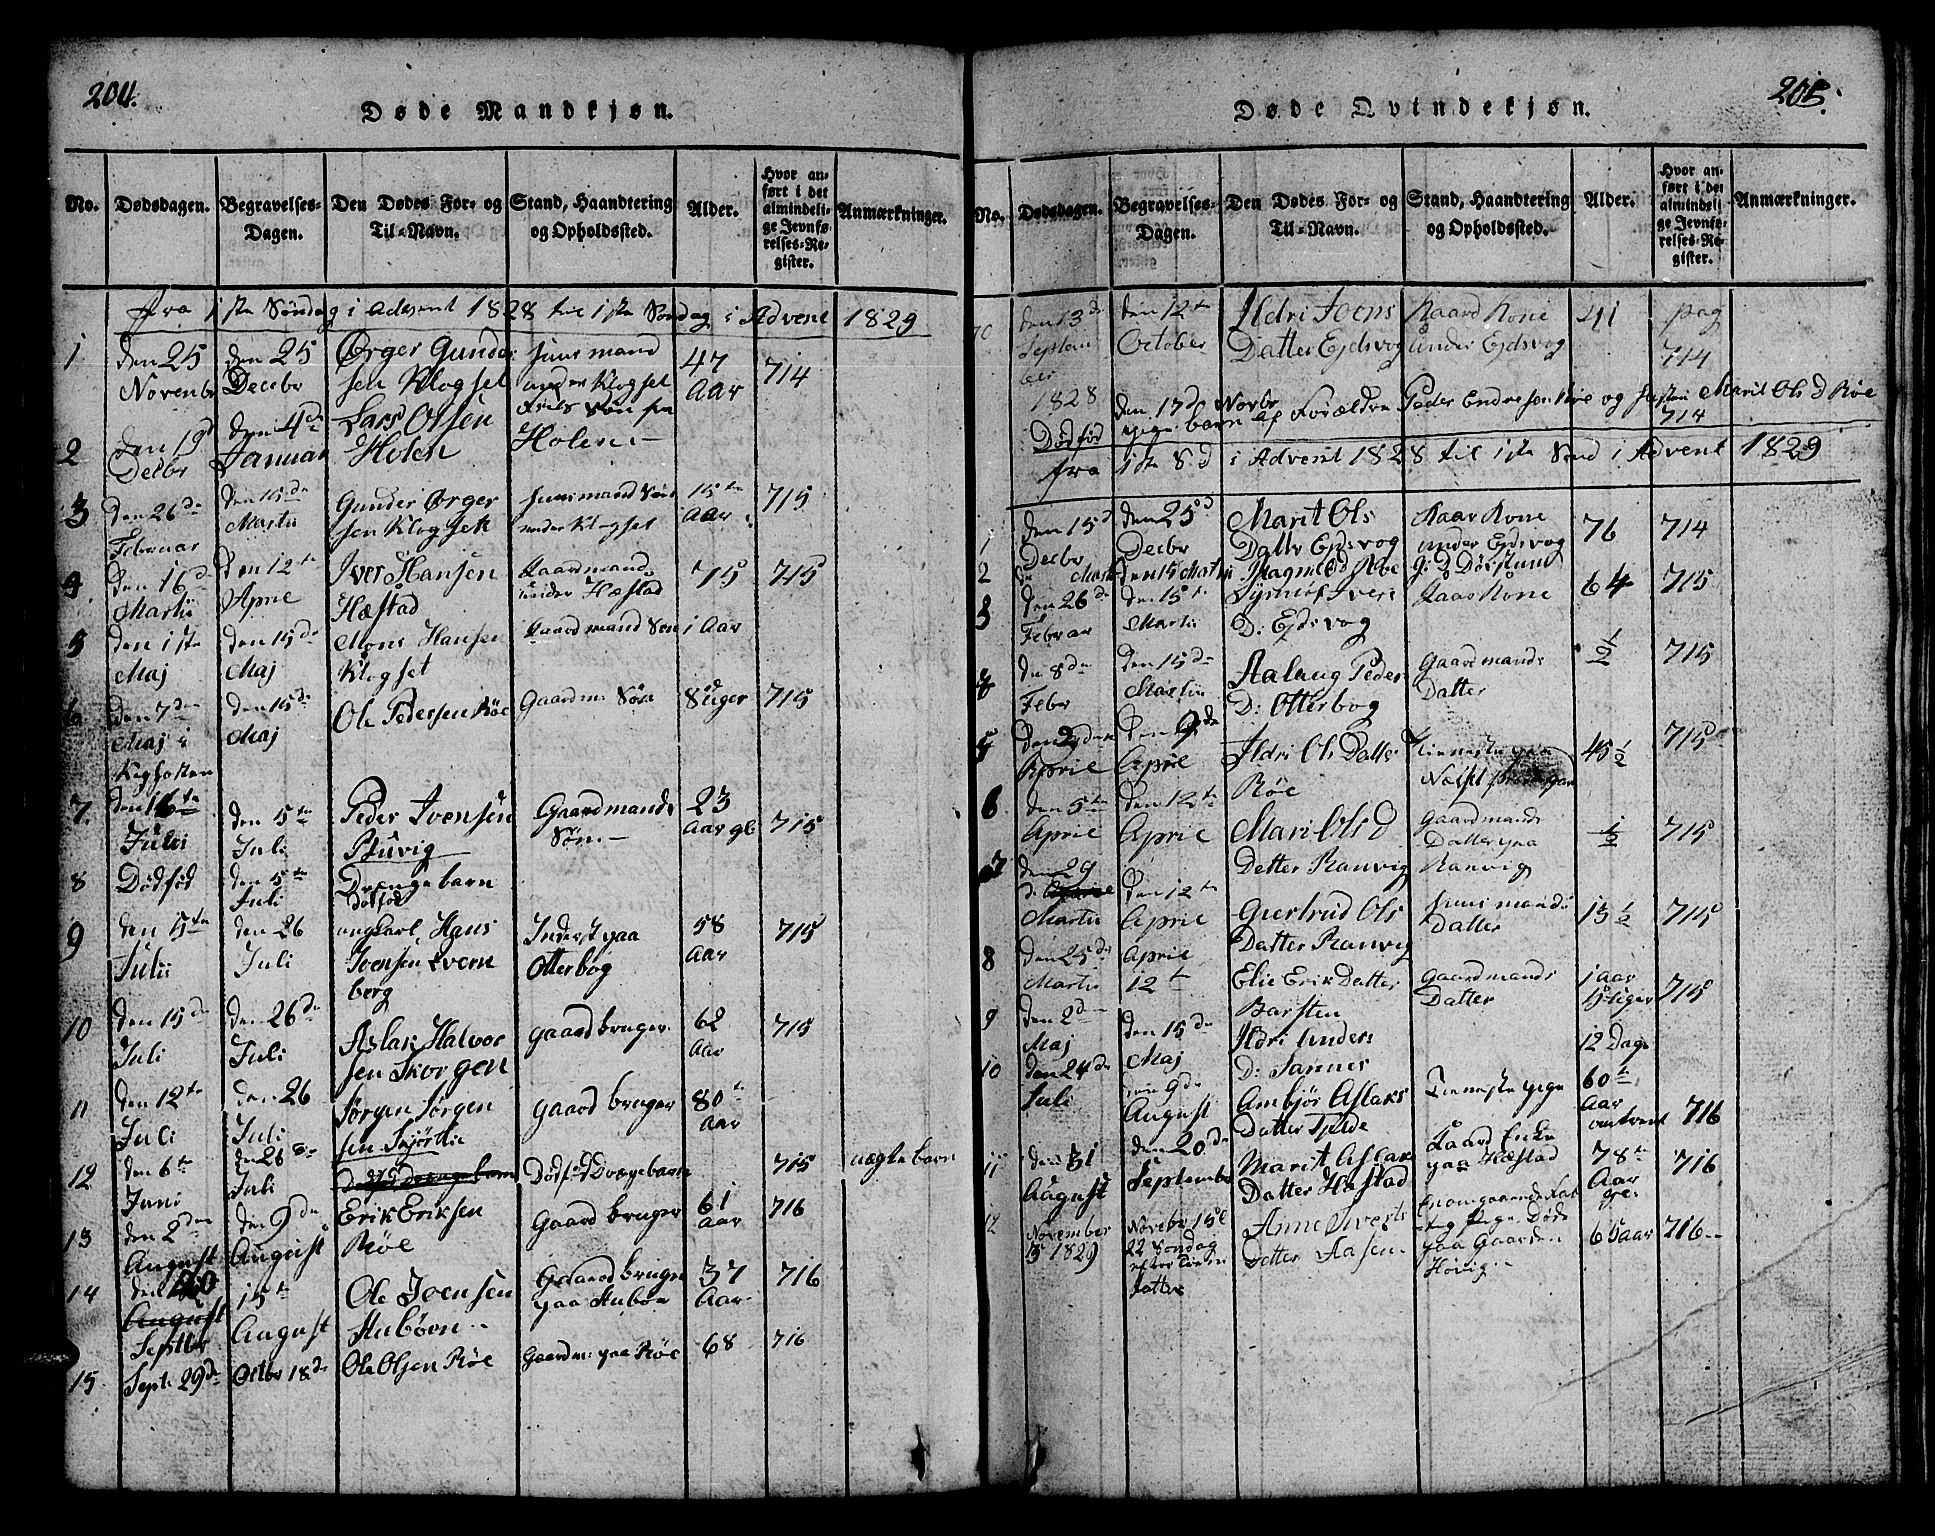 204.
Døde Mandkjøn.
No.
Dødsdagen.
Begravelses-Dagen.
Den Dødes For- og Til-Navn.
Stand, Haandtering og Opholdssted.
Alder.
Hvor anført i det almindelige Jevnførelses-Register.
Anmærkninger.
fra 1ste Søndag i Advent 1828 til 1ste Søndag i Advent 1829
1 den 25 Novenbr den 25 Decebr Ørger Gundersen Klogset Huusmand under Klogset 47 Aar 714
2 den 19d Decbr den 4de Januar Lars Olsen Holen Søn fra Holen
3 den 26de Februar den 15de Martii Gunder Ørgersen Klogseth Huusmand Søn under Klogset 15te Aar 715
4 den 16de Martii den 12te Aprie Iver Hansen Hæstad Gaardmand under Hæstad 75 715
5 den 1ste Maj den 15de Maj Mons Hansen Klogset Gaardmand Søn 1 Aar
6 den 7de Maj den 15de Maj Ole Pedersen Røe Gaardm: Søn 8 Uger 715
7. den 16te Julii den 5te Juli Peder Ivensen Buvig Gaardmands Søn. 23 Aar gl 715
8 Dødfød den 5te Juli Drengebarn dødfød
9 den 15te Julii den 26 Juli ungkarl Hans Ivensen Evernberg Inderst paa Otterbog 58 Aar 715
10 den 15de Juli den 26de Juli Aslak Halvorsen Skorgen gaardbruger 62 Aar 715
11 den 12te Juli den 26 Juli Jørgen Jørgensen Gaard bruger 80te Aar
12 den 6te Juni den 26de Juli Dødfød Drængebarn 715 uægte barn
13 den 2den August den 9de August Erik Eriksen Røe Gaard bruger 61 Aar 716
14 den 20 August Septbr 15te August Ole Ivensen Stubøen Gaard bruger paa Stubøe 37 Aar 716
15 Sept: 29de Octbr 18de Ole Olsen Røe Gaardm: paa Røe 68 716
205.
Døde Qvindekjøn.
No.
Dødsdagen.
Begravelses-Dagen.
Den Dødes For- og Til-Navn.
Stand, Haandtering og Opholdssted.
Alder.
Hvor anført i det almindelige Jevnførelses-Register.
Anmærkninger.
10 den 13de September 1828 den 12te October Ildri Joens Datter Ejdsvog Kaard Kone under Ejdsvog 41 pag 714
Dødfød den 17de Novbr pige barn af Forældre Peder Endresen Røe og Marit Ols D Røe 714
fra 1ste S.d i Advent 1828 til 1ste Sønd i Advent 1829
1 den 15d Decbr den 25d Decbr Marit Ols Datter Ejdsvog Kaar Kone under Ejdsvog 76 714
2 Marti den 15 Martii Magnild Røe
3 den 26de Februar den 15te Martii Iversd: Ejdsvog Kaar Kone 64 715
4 den 8de Febr den 15de Martii Aalaug Peders D: Otterbog Gaardmands Datter 1/2 715
5 den Aprie den 9de Aprie Ildri Ols Datter Røe Tieneste paa 45 1/2 715
6 den 5te Aprie den 12te Aprie Mari Ols D Datter Ranvig Gaardmands Datter paa Ranvig 1/2 715
7 den 29 Martii den 12te Aprie Giertrud Ols Datter Ranvig Huusmands Datter 15 1/2 715
8 den 25de Martii Aprie 12te Elie Erik Datter Barsten Gaardmands Datter 1 Aar 715
9 den 2den Maj den 15de Maj Ildri Anders D: Sannes 12 Dage
10 den 24de Juli den 9de August Ambjør Aslaks Datter Tjelde Tieneste pige 60te Aar omtrent 716
11 den 31 August den 20de September Marit Aslaks Datter Hæstad Kaard Enke paa Hæstad 78te Aar 716
12 November 15 1829 Novebr 15de 22 Søndag efter Anne Siverts Datter Aasen pige Døde paa Gaarden Høvig 65 Aar 716